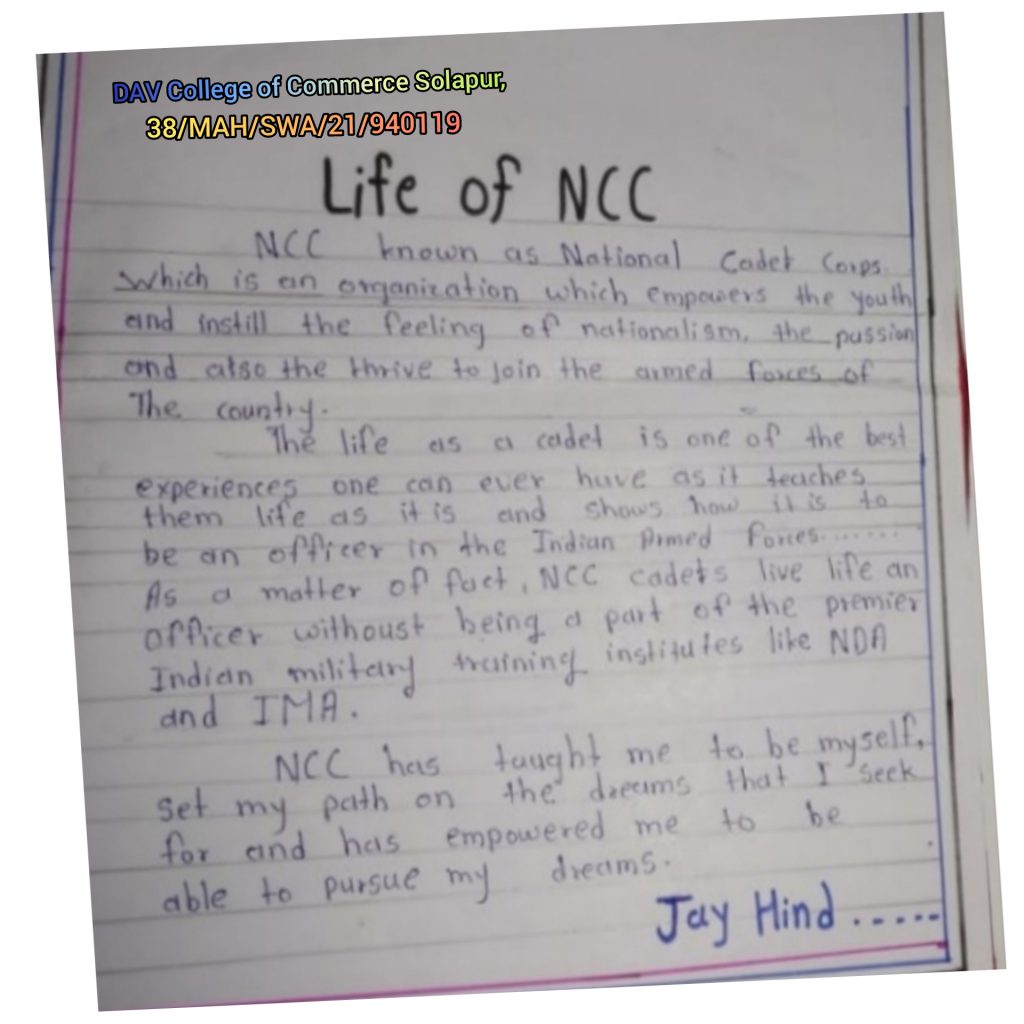 DAV College of Commerce Solapur,
38/MAH/SWA/21/940119
Life of NCC
NCC known as National Cadet Corps
Which is an organization which empowers the youth
and instill the feeling of nationalism, the passion
and also the thrive to join the armed forces of
The country.
The life as a cadet is one of the best
experiences one can ever have as it teaches
them life as it is and shows how it is to
be an officer in the Indian Armed forces.......
As a matter of fact, NCC cadets live life an
officer withoust being a part of the premier
Indian military training institutes like NDA
and IMA.
NCC has taught me to be myself,
set my path on the dreams that I seek
for and has empowered me to be
able to pursue my dreams.
Jay Hind .....